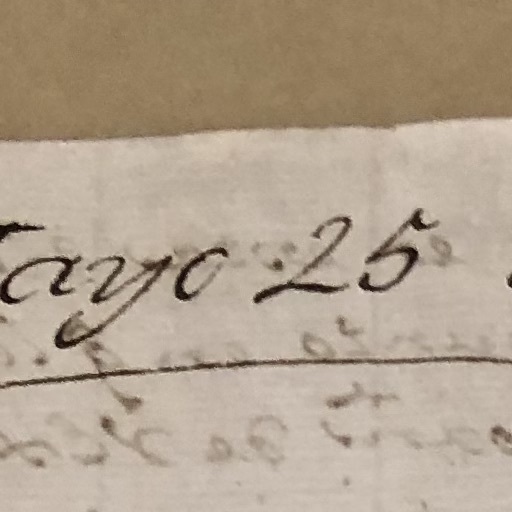 Mayo 25